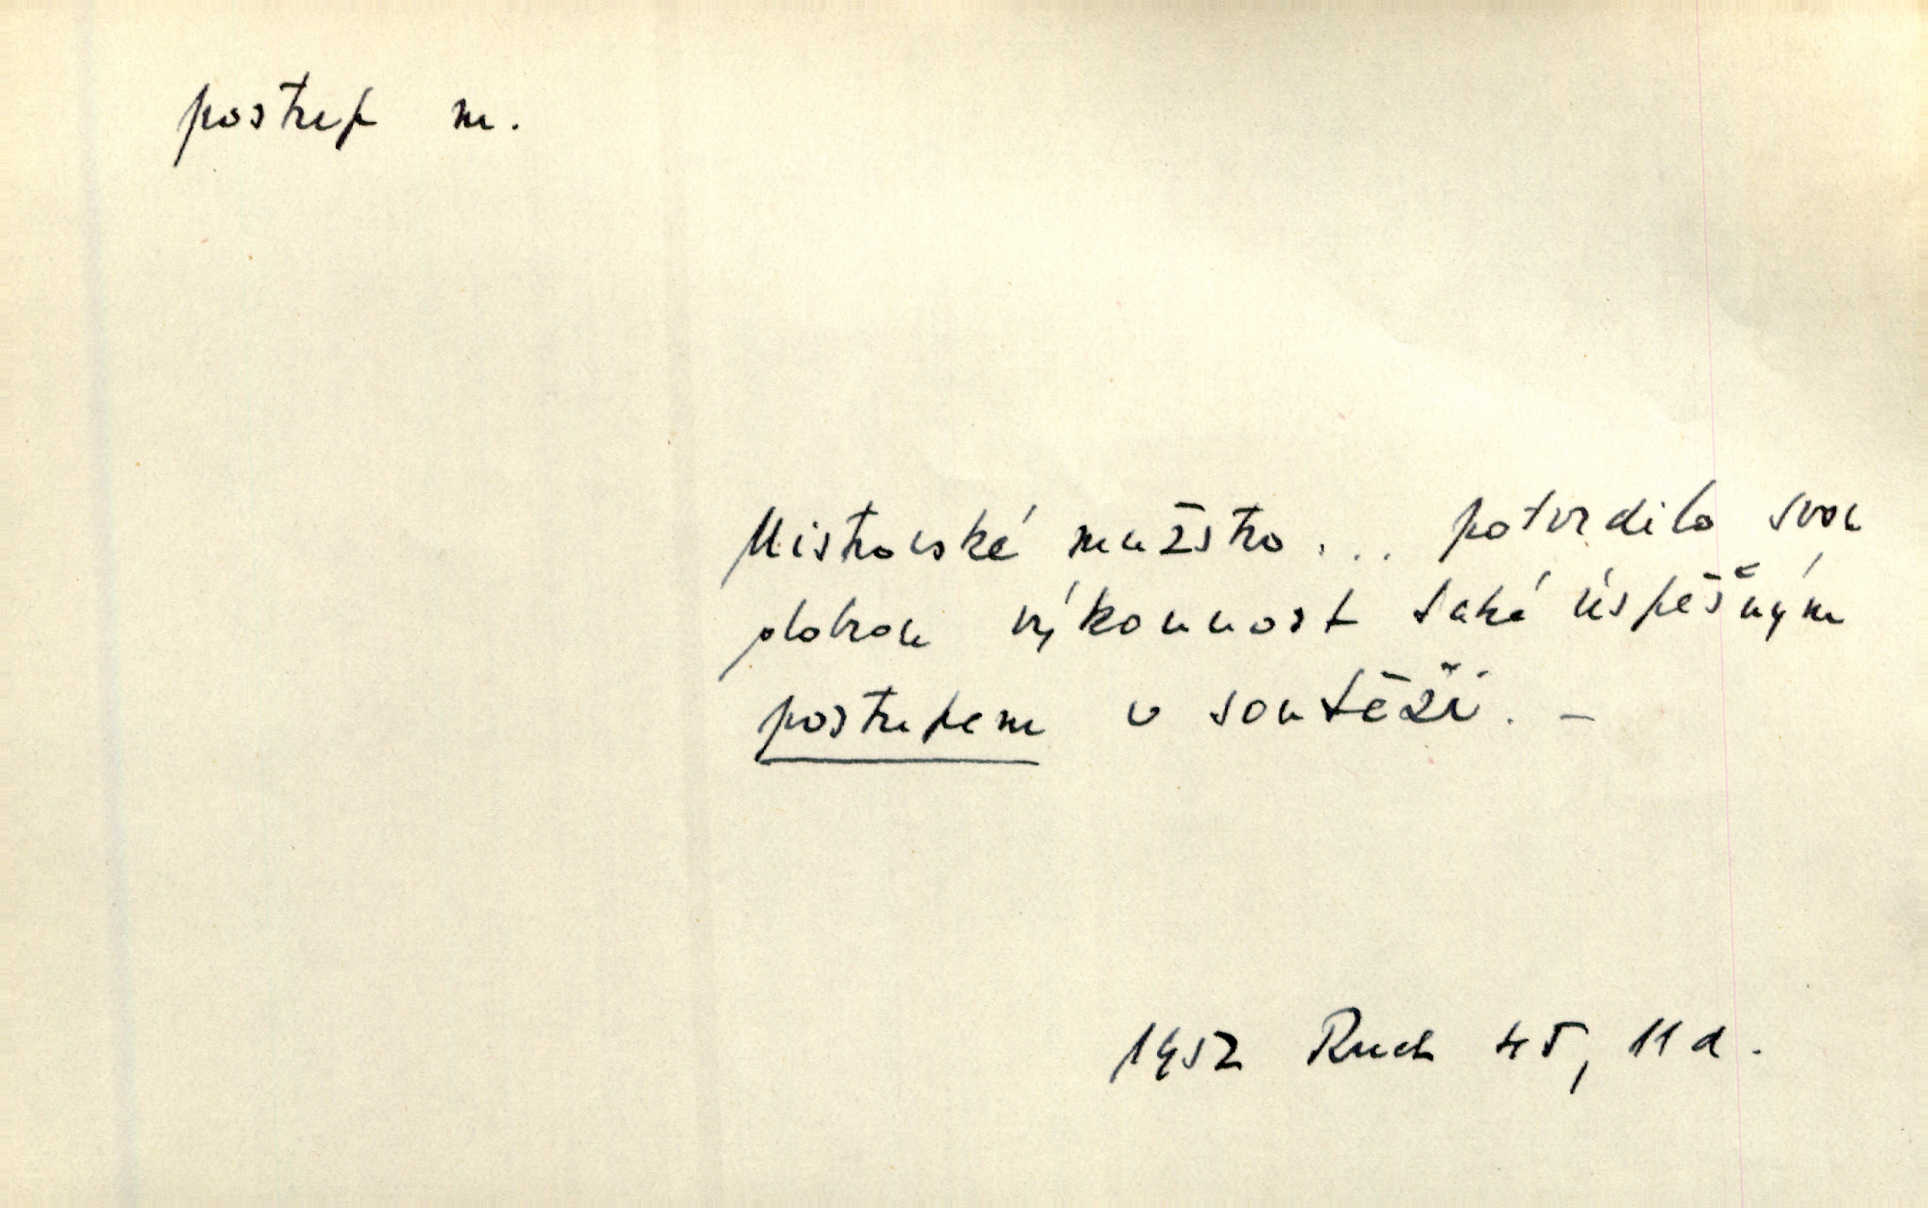 postup m.
Mistrovské mužstvo ... potvrdilo svou
dobrou výkonnost také úspěšným
postupem v soutěži. –
1952 Ruch 45, 11 a.